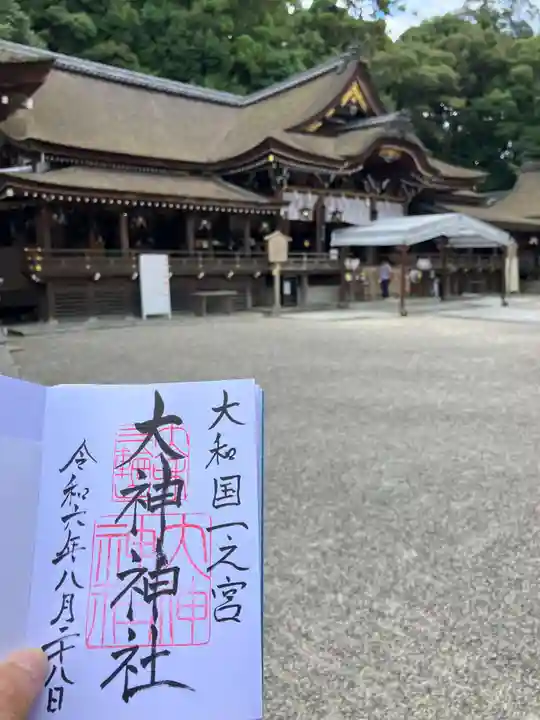 大和国一之宮
大神神社
令和六年八月二十八日
大神神社